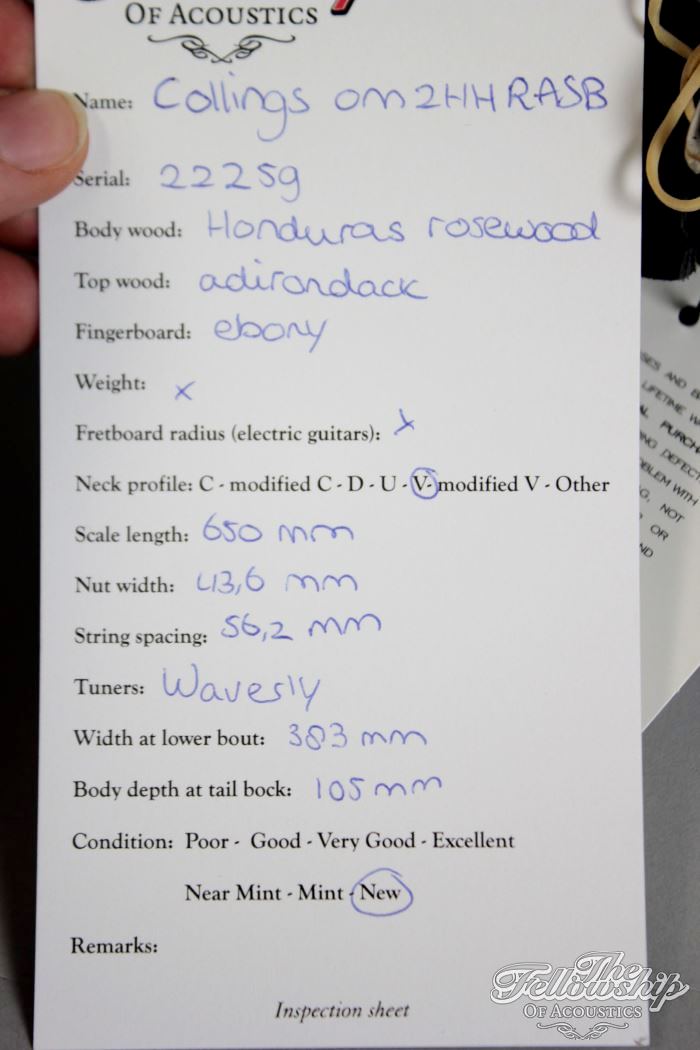 OF ACOUSTICS
Name: Collings om2HHRASB
Serial: 22259
Body wood: Honduras rosewood
Top wood: adirondack
Fingerboard: ebony
Weight: x
Fretboard radius (electric guitars): x
Neck profile: C - modified C - D - U - V- modified V - Other
Scale length: 650 mm
Nut width: 43,6 mm
String spacing: 56,2 mm
Tuners: Waverly
Width at lower bout: 383 mm
Body depth at tail bock: 105 mm
Condition: Poor - Good - Very Good - Excellent
Near Mint - Mint - New
Remarks:
Inspection sheet
SES AND
LIFETIME
PURCH
DEFECT
BLEM WITH
NOT
OR
The
Fellowship
OF ACOUSTICS